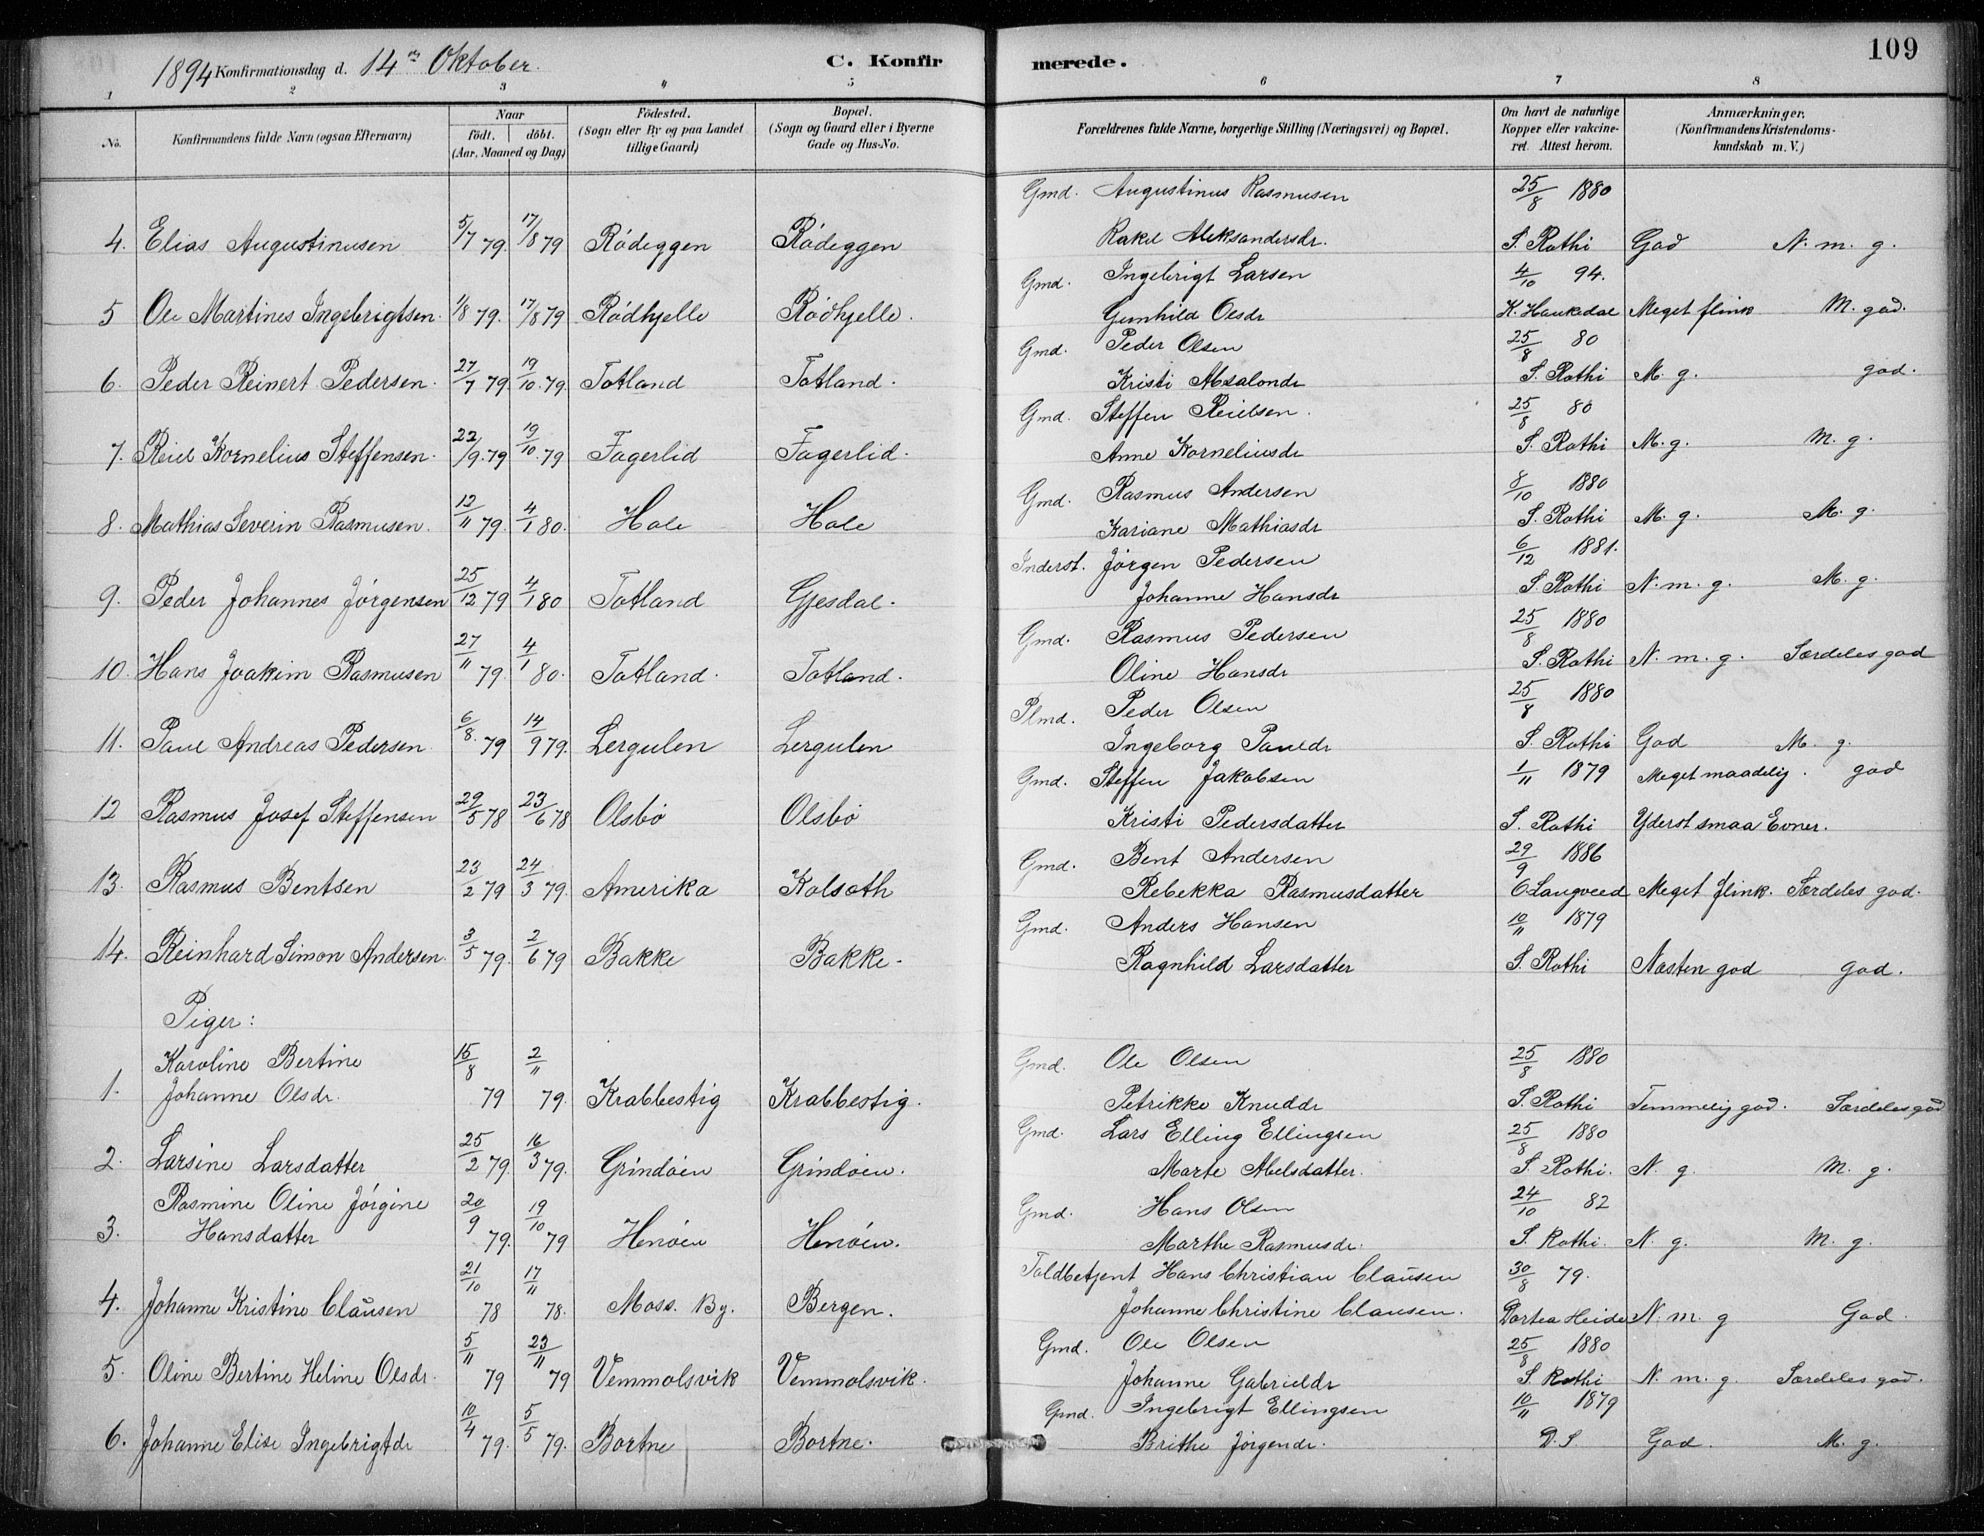 109
1894 Konfirmationsdag d. 14de Oktober. C. Konfirmerede.
1 2 3 4 5 6 7 8
No. Konfirmandens fulde Navn (ogsaa Efternavn) Naar födt. döbt. (Aar, Maaned og Dag) Födested. (Sogn eller By og paa Landet tillige Gaard) Bopæl. (Sogn og Gaard eller i Byerne Gade og Hus-No. Forældrenes fulde Navne, borgerlige Stilling (Næringsvei) og Bopæl. Om havt de naturlige Kopper eller vakcineret. Attest herom. Anmærkninger. (Konfirmandens Kristendomskundskab m. V.)
Gmd. Augustinus Rasmusen 25/8 1880
4. Elias Augustinusen 5/7 79. 17/8 79 Rödeggen Rödeggen Rakel Aleksandersdr. S. Rothi God N. m. g.
Gmd. Ingebrigt Larsen 4/10 94.
5 Ole Martines Ingebrigtsen. 1/8 79. 17/8 79 Rödhjelle Rödhjelle. Gunhild Olsdr K. Haukedal Meget flink M. god.
Gmd. Peder Olsen 25/8 80
6. Peder Reinert Pedersen. 27/7 79 19/10. 79. Totland Totland. Kristi Absalondr S. Rothi M. g. god.
Gmd. Steffen Reielsen. 25/8 80
7. Reiel Kornelius Steffensen. 22/9. 79 19/10. 79 Fagerlid Fagerlid. Anne Korneliusdr S. Rothi M. g. M. g.
Gmd. Rasmus Andersen 8/10 1880
8. Mathias Severin Rasmusen. 12/11 79. 4/1 80. Hole Hole Kariane Mathiasdr S. Rothi M. g. M. g.
Inderst. Jörgen Pedersen 6/12 1881.
9. Peder Johannes Jörgensen 25/12 79 4/1 80 Totland Gjesdal. Johanne Hansdr S. Rothi N. m. g. M. g.
Gmd. Rasmus Pedersen 25/8 1880
10. Hans Joakim Rasmusen 27/11 79. 4/1 80. Totland. Totland. Oline Hansdr S. Rothi N. m. g. Særdeles god
Plmd. Peder Olsen 25/8 1880
11. Paul Andreas Pedersen. 6/8. 79 14/9 79. Lergulen Lergulen Ingeborg Pauldr S. Rothi God M. g.
Gmd. Steffen Jakobsen 1/11 1879 Meget maadelig. god
12 Rasmus Josef Steffensen 29/5 78 23/6 78 Olsbö Olsbö Kristi Pedersdatter S. Rothi Yderst smaa Evner.
Gmd. Bent Andersen 29/9 1886
13. Rasmus Bentsen 23/2 79 24/3 79. Amerika Kolsath Rebekka Rasmusdatter O Laugveed Meget flink. Særdeles god.
Gmd. Anders Hansen 10/11 1879
14. Reinhard Simon Andersen. 3/5 79. 2/6 79 Bakke Bakke. Ragnhild Larsdatter S. Rothi Næsten god god.
Piger:
Karoline Bertine 15/8 2/11 Gmd. Ole Olsen 25/8 1880
1. Johanne Olsdr. 79 79. Krabbestig Krabbestig. Petrikke Knuddr S. Rothi Temmelig god. Særdeles god
Gmd. Lars Elling Ellingsen 25/8 1880
2. Larsine Larsdatter 25/2 79. 16/3 79. Grindöen Grindöen. Marte Abelsdatter. S. Rothi. N. g. M. g.
Rasmine Oline Jörgine 20/9 19/10 Gmd. Hans Olsen 24/10 82
3. Hansdatter 79. 79 Henöen Henöen. Marthe Rasmusdr. S. Rothi. N. g. M. g.
21/10 17/11 Toldbetjent Hans Christian Clausen 30/8 79.
4. Johanne Kristine Clausen 78 78. Moss. By. Bergen. Johanne Christine Clausen. Dortea Heide N. m. g God.
5/11 23/11 Gmd. Ole Olsen 25/8 1880
5. Oline Bertine Heline Olsdr. 79 79 Vemmolsvik Vemmolsvik. Johanne Gabrieldr S. Rothi N. m. g. Særdeles god.
Gmd. Ingebrigt Ellingsen 10/11 1879
6. Johanne Elise Ingebrigtdr 10/4 79. 5/5 79. Bortne Bortne. Brithe Jörgendr. D. S God. M. g.